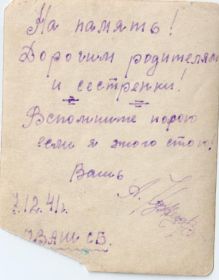 На память!
Дорогим родителям
и сестренки!
Вспомните порою
если я этого стою.
Вашь
А.
2.12.41г.